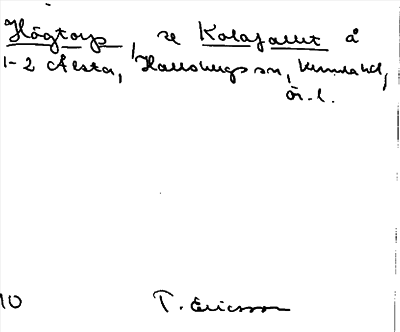 Högtorp, se Kolafallet å
1-2 Älsta, Hallsbergs sn, Kumla hd,
ör. l.
10 T. Ericsson